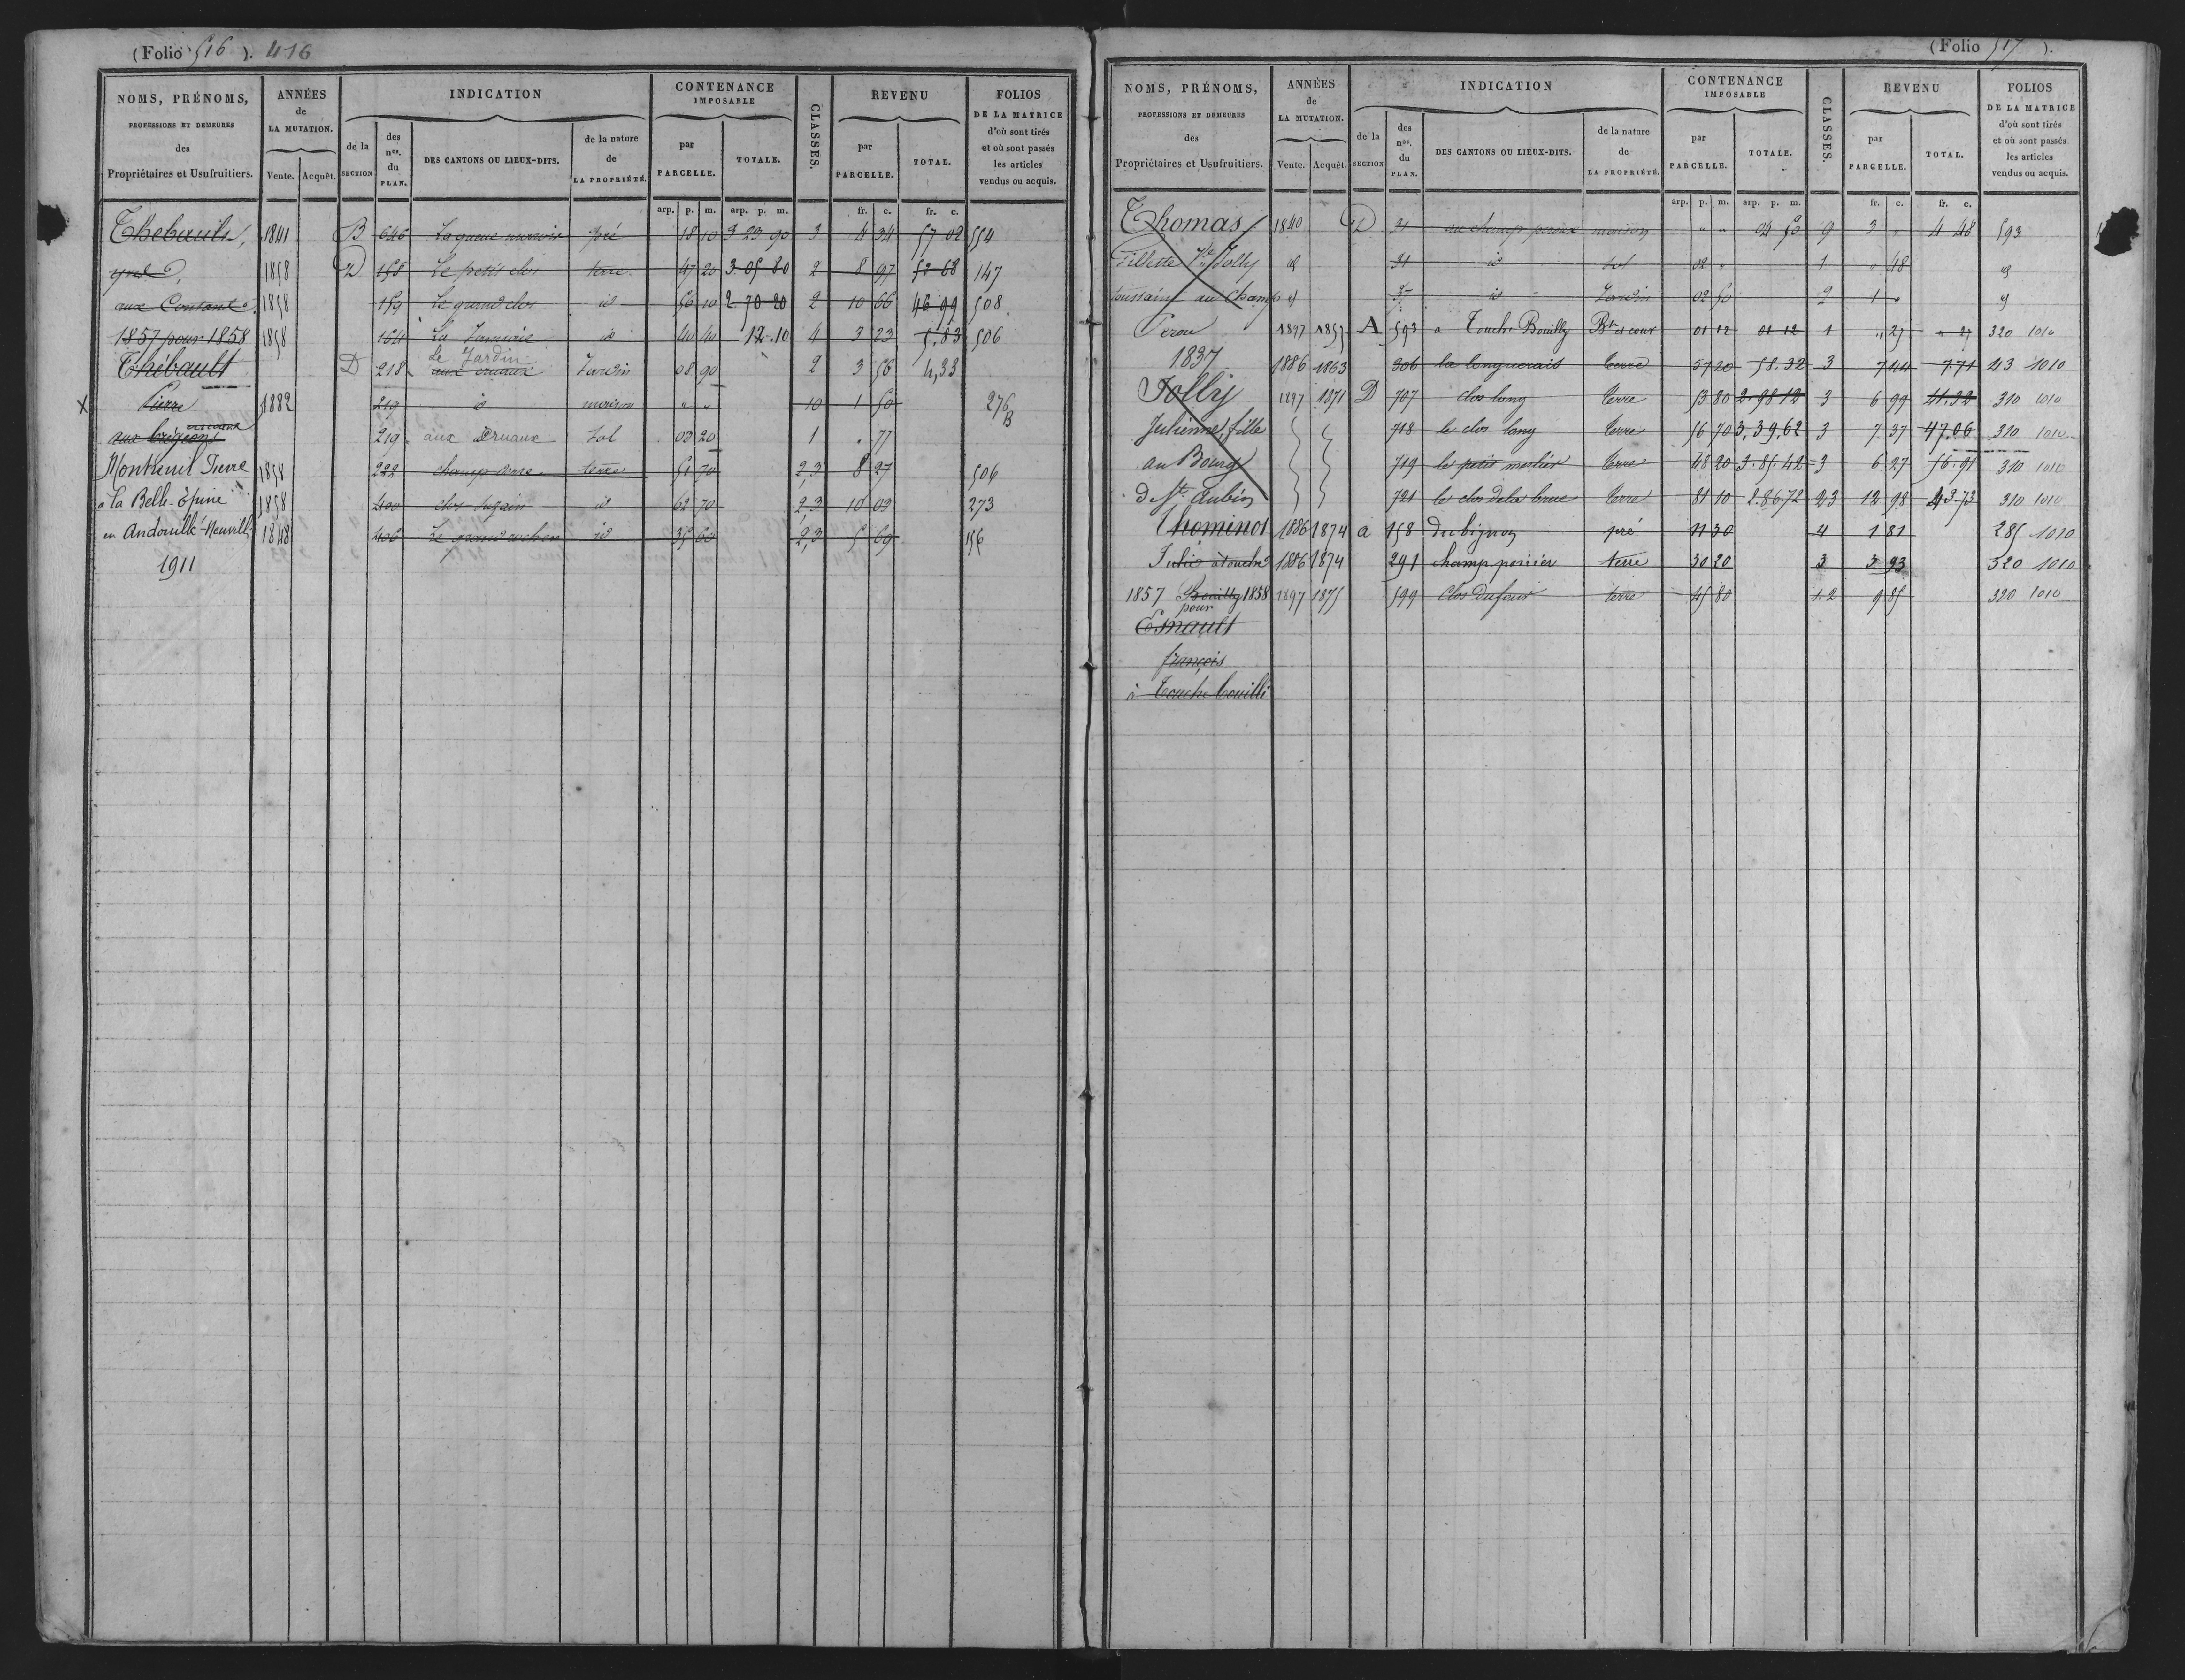 (Folio 516 ). 416
NOMS, PRÉNOMS, PROFESSIONS ET DEMEURES des Propriétaires et Usufruitiers.
ANNÉES de LA MUTATION. Vente. Acquêt.
INDICATION de la SECTION des nos. du PLAN. DES CANTONS OU LIEUX-DITS. de la nature de LA PROPRIÉTÉ.
CONTENANCE IMPOSABLE par PARCELLE. TOTALE.
CLASSES.
REVENU par PARCELLE. TOTAL.
FOLIOS DE LA MATRICE d'où sont tirés et où sont passés les articles vendus ou acquis.
arp. p. m. arp. p. m. fr. c. fr. c.
Thebault, 1841 B 646 La queue pré 18 10 3 23 90 3 4 34 57 02 554
1858 D 158 Le petit clos terre 47 20 3 05 80 2 8 97 52 68 147
aux 1858 159 Le grand clos id 56 10 2 70 20 2 10 66 46 99 508
1857 pour 1858 1858 164 La id 40 40 12.10 4 3 23 5,83 506
Thébault D 218 Le Jardin Jardin 08 90 2 3 56 4,33
x Pierre 1882 219 id maison " " 10 1 50 276 B
aux 219 aux sol 03 20 1 " 77
Montreuil Pierre 1858 222 champ terre 51 70 2,3 8 97 506
à la Belle-Épine 1858 400 clos id 62 70 2,3 10 03 273
en Andouillé-Neuville 1848 406 Le grand id 35 60 2,3 5 69 156
1911
(Folio 517 ).
NOMS, PRÉNOMS, PROFESSIONS ET DEMEURES des Propriétaires et Usufruitiers.
ANNÉES de LA MUTATION. Vente. Acquêt.
INDICATION de la SECTION des nos. du PLAN. DES CANTONS OU LIEUX-DITS. de la nature de LA PROPRIÉTÉ.
CONTENANCE IMPOSABLE par PARCELLE. TOTALE.
CLASSES.
REVENU par PARCELLE. TOTAL.
FOLIOS DE LA MATRICE d'où sont tirés et où sont passés les articles vendus ou acquis.
arp. p. m. arp. p. m. fr. c. fr. c.
Thomas 1840 D 31 au champ maison " " 04 50 9 3 " 4 48 593
Jolly id 31 id sol 02 " 1 " 48 id
au Champ id id Jardin 02 50 2 1 " id
1897 1857 A 593 a Touche Bouilly Bt et cour 01 12 01 12 1 " 27 " 27 320 1010
1837 1886 1863 306 la longuerais terre 57 20 58.32 3 7 44 7.71 213 1010
Jolly 1897 1871 D 707 clos long terre 53 80 2.98 12 3 6 99 41.32 310 1010
Julienne, fille 718 le clos long terre 56 70 3,39,62 3 7 37 47.06 310 1010
au Bourg 719 le petit terre 48 20 3.85.42 3 6 27 56.91 310 1010
de St. Aubin 721 le clos de la terre 81 10 2.86.72 23 12 98 43.73 310 1010
Thominot 1886 1874 a 158 pré 11 30 4 1 81 285 1010
Julie à touche 1886 1874 291 champ poirier terre 30 20 3 3 93 320 1010
1857 pour Bouilly 1858 1897 1875 599 Clos du four terre 45 80 1-2 9 85 320 1010
Esnault
françois
à Touche bouilli